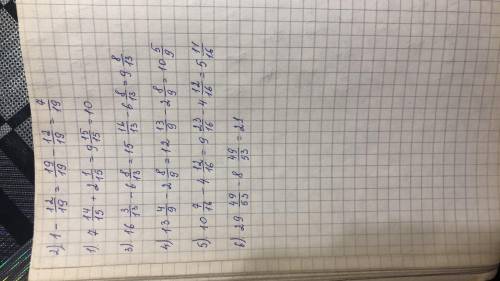 2) 1 - 12/19 = 19/19 - 12/19 = 7/19
1). 7 14/15 + 2 1/15 = 9 15/15 = 10
3). 16 3/13 - 6 8/13 = 15 16/13 - 6 8/13 = 9 8/13
4). 13 4/9 - 2 8/9 = 12 13/9 - 2 8/9 = 10 5/9
5). 10 7/16 - 4 12/16 = 9 23/16 - 4 12/16 = 5 11/16
6). 29 49/53 8 49/53 = 21